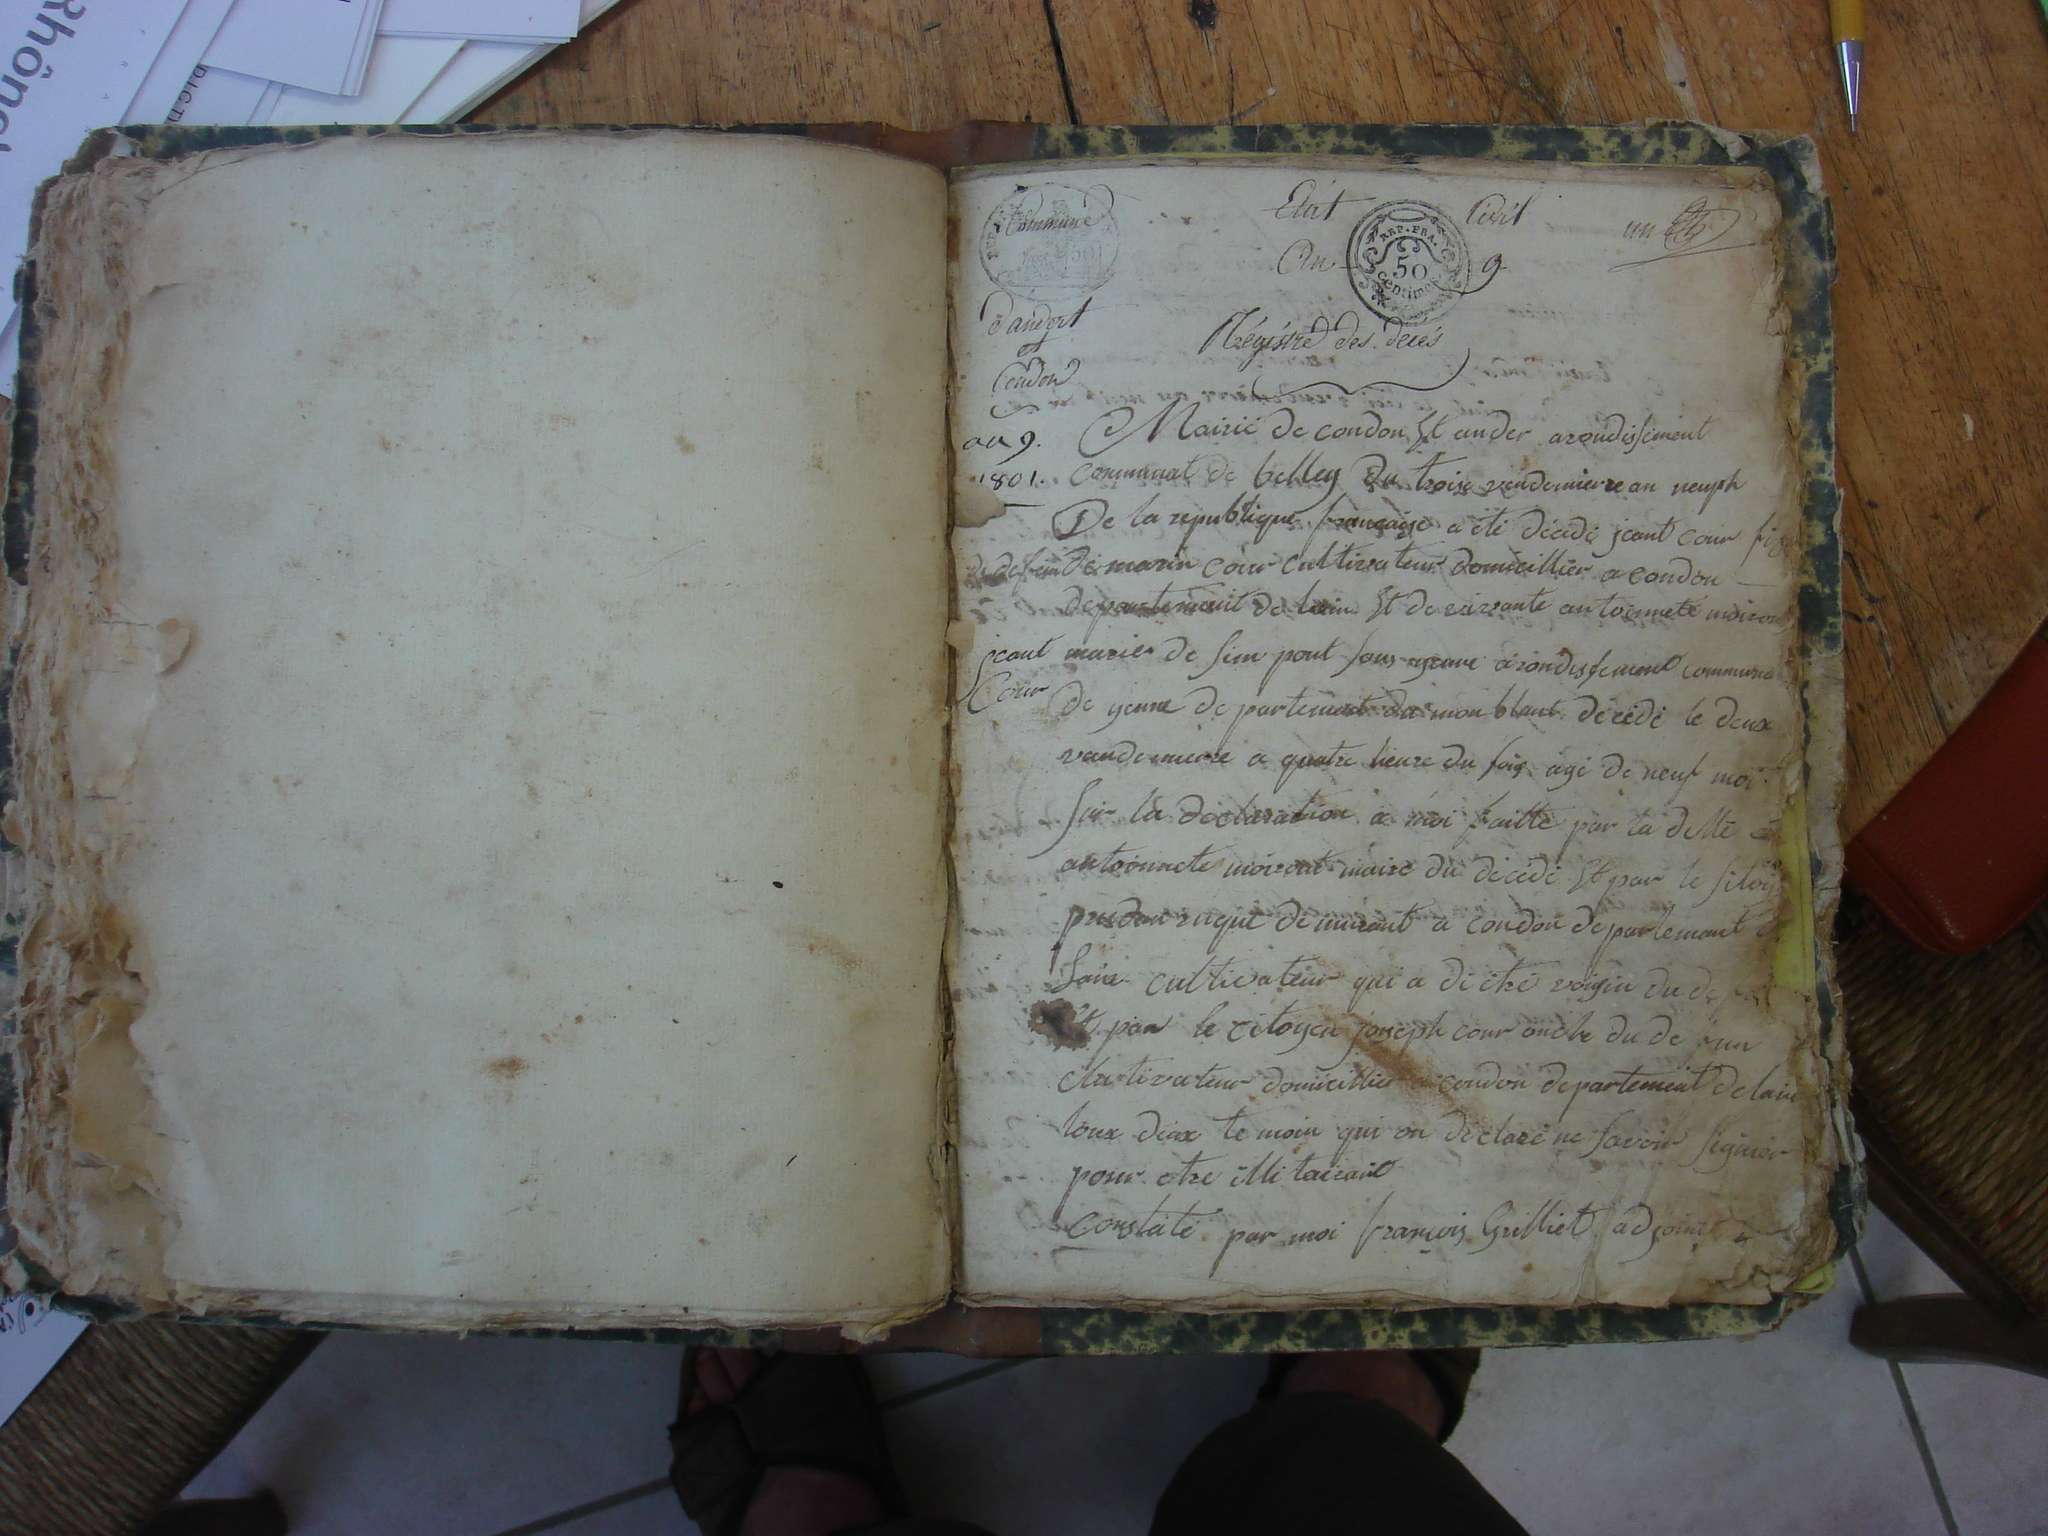 Rhône
Commune
Etat Civil
un
REP. FRA.
50
centimes
An 9
d'andert
et
Condon
Régistre des décés
an 9.
1801.
Mairie de condon Et ander arondissement
communal de belley Du troise vendemierre an neuph
De la republique francaise a été décedé jeant cour fis
marin cour cultivateur domicillier a condon
departement de lain Et de vivante antoinnete moiron
jeant
Cour
marier de sim pout sous yenne arondissement communa
de yenne de partement du mon blant décédé le deux
vandemierre a quatre heure du soir agé de neuf moi
sur la déclaration a moi faitte par la ditte
antoinnete moiront maire du décédé Et par le sitoy
prudon deмurant a condon departemant
lain cultivateur qui a di etre voisin du
Et par le citoyen joseph cour oncle du
clutivateur domicillier a condon departement de lain
loux deux temoin qui on declaré ne savoir signier
pour etre illi tairant
Constaté par moi françois Grilliet adjoint